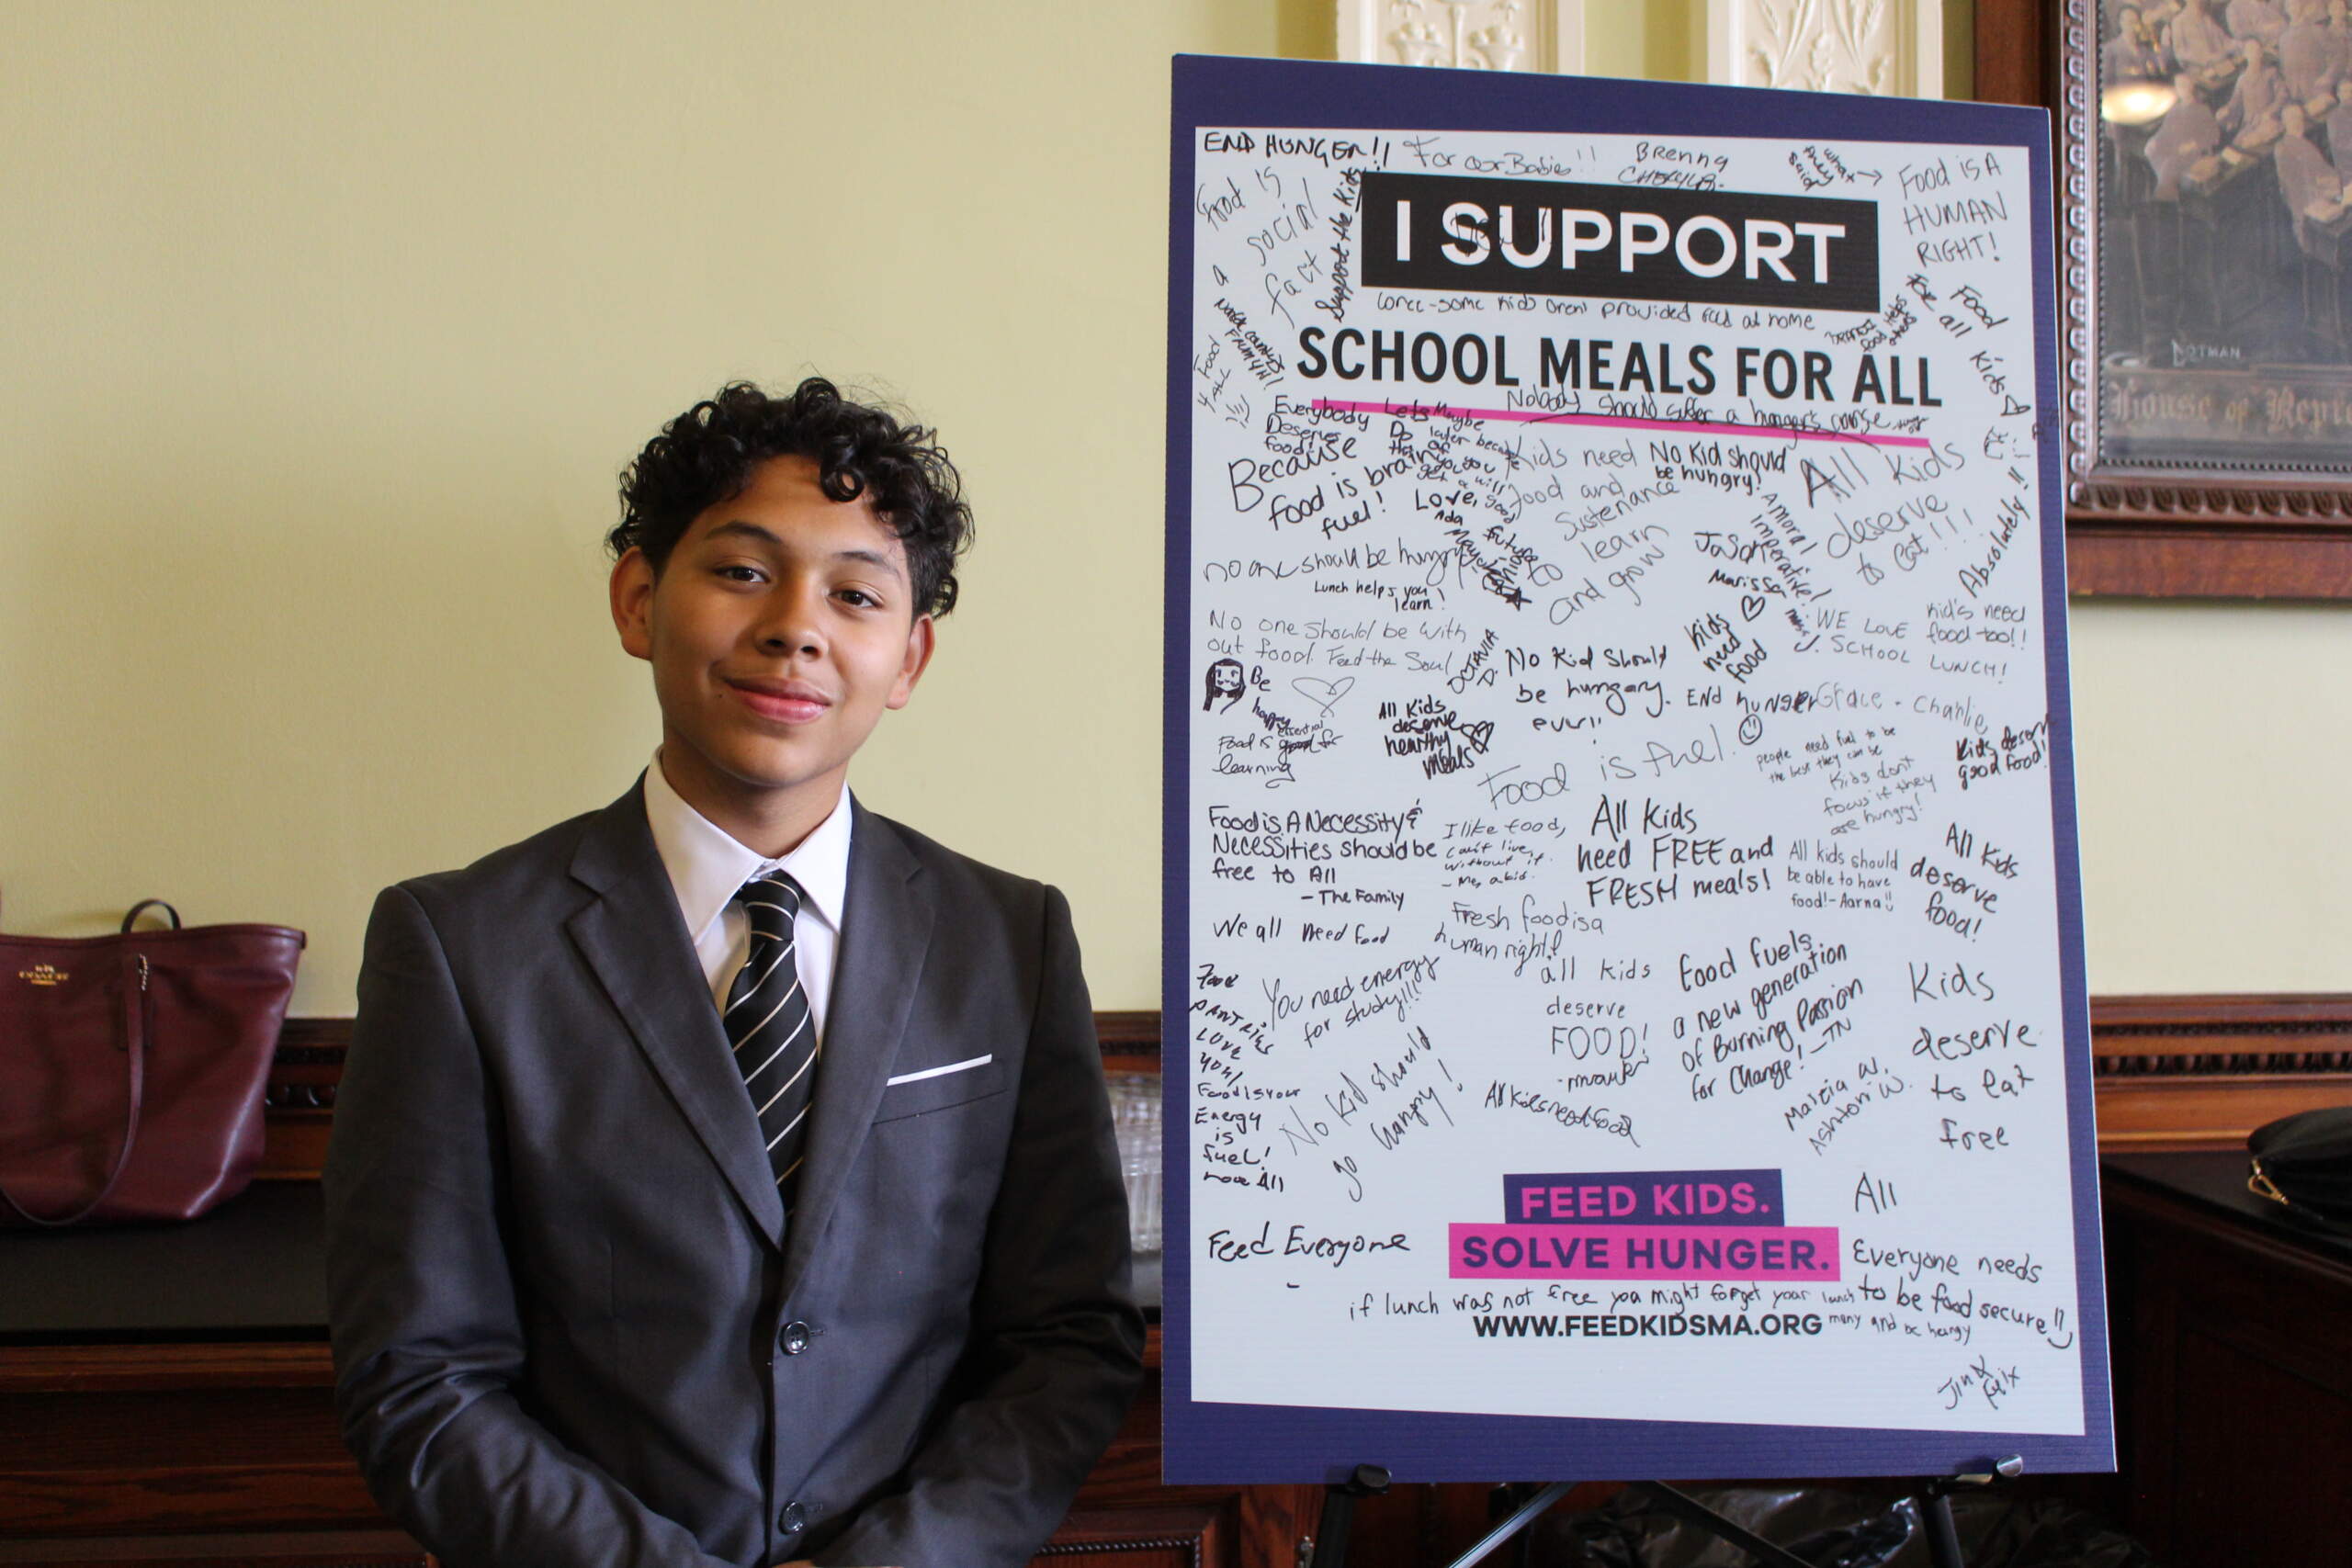 END HUNGER!!
For our Babies!!
BRENNA
what they said →
Food is A
HUMAN
RIGHT!
Food is
social
fact
Support the Kids
I SUPPORT
some kids aren't provided food at home
for all
Food
4 ALL
SCHOOL MEALS FOR ALL
Food for all Kids
Nobody should suffer a hunger's
Everybody
Deserves
food!
Because
food is brain
fuel!
Love,
Ada
Kids need
food and
sustenance
to
learn
and grow
No Kid should
be hungry!
All Kids
deserve
to eat!!!
A moral
imperative!
Absolutely!!
Marissa
no one should be hungry
Lunch helps you
learn!
No one should be with
out food. Feed the Soul
OCTAVIA
D.
No Kid Should
be hungary.
ever!!
Kids
need
food
WE LOVE
SCHOOL LUNCH!
Kid's need
food too!!
Be
happy
All Kids
deserve
healthy
meals
END hUNGER
Grace - Charlie
Food is essential for
learning
Food is fuel.
people need fuel to be
the best they can be
Kids don't
focus if they
are hungry!
Kids deserv
good food!
Food is A Necessity &
Necessities should be
free to All
- The Family
I like food,
can't live
without it.
- Me, a kid.
All Kids
need FREE and
FRESH meals!
All kids should
be able to have
food! - Aarna!!
All Kids
deserve
food!
We all need food
Fresh food is a
human right!
Food
PANTRIES
LOVE
YOU!
You need energy
for study!!!
all kids
deserve
FOOD!
Food fuels
a new generation
of Burning Passion
for Change! -TN
Kids
deserve
to eat
free
Food is your
Energy
is
fuel!
No kid should
go hungry!
All kids need food
Marcia W.
Ashton W.
FEED KIDS.
SOLVE HUNGER.
All
Feed Everyone
Everyone needs
to be food secure!!
if lunch was not free you might forget your lunch
money and be hungry
WWW.FEEDKIDSMA.ORG
Jin &
Felix
COACH
DOTMAN
House of Rep